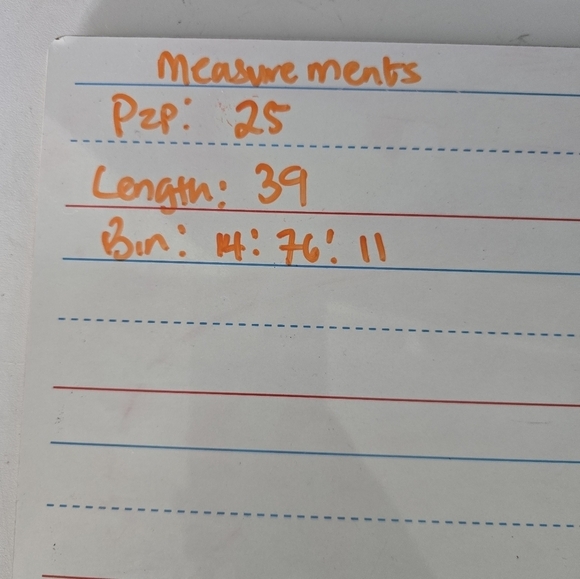 Measurements
Pzp: 25
Length: 39
Bin: 14: 76: 11